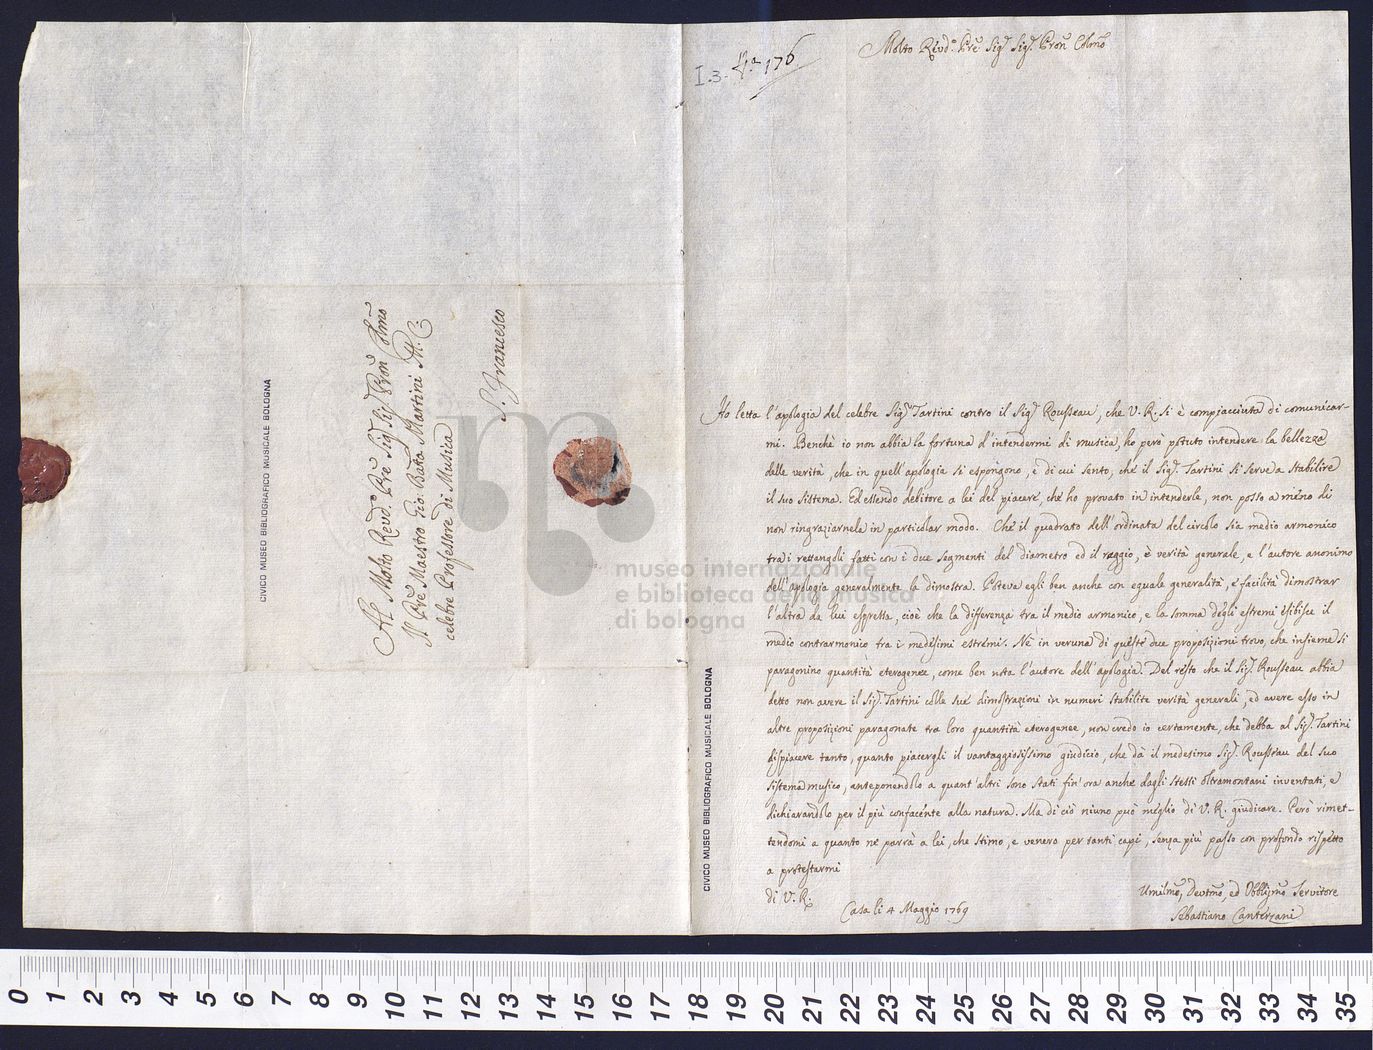 Al Molto Revdo. Pre Sigr. Sigr. Pron Colmo
Il Pre Maestro Gio. Batta Martini M. C.
celebre Professore di Musica
S. Francesco
CIVICO MUSEO BIBLIOGRAFICO MUSICALE BOLOGNA
I.3. 176
Molto Revdo. Pre Sigr. Sigr. Pron Colmo
Ho letta l'apologia del celebre Sigr. Tartini contro il Sigr. Rousseau, che V. R. si è compiacciuta di comunicar-
mi. Benchè io non abbia la fortuna d'intendermi di musica, ho però potuto intendere la bellezza
delle verità, che in quell'apologia si espongono, e di cui sento, che il Sigr. Tartini si serve a stabilire
il suo sistema. Ed essendo debitore a lei del piacere, che ho provato in intenderle, non posso a meno di
non ringraziarnela in particolar modo. Che il quadrato dell'ordinata del circolo sia medio armonico
tra i rettangoli fatti con i due segmenti del diametro ed il raggio, è verità generale, e l'autore anonimo
dell'apologia generalmente la dimostra. Poteva egli ben anche con eguale generalità, e facilità dimostrar
l'altra da lui espressa, cioè che la differenza tra il medio armonico, e la somma degli estremi esibisce il
medio contrarmonico tra i medesimi estremi. Nè in veruna di queste due proposizioni trovo, che insieme si
paragonino quantità eterogenee, come ben nota l'autore dell'apologia. Del resto che il Sigr. Rousseau abbia
detto non avere il Sigr. Tartini colle sue dimostrazioni in numeri stabilite verità generali, ed avere esso in
altre proposizioni paragonate tra loro quantità eterogenee, non credo io certamente, che debba al Sigr. Tartini
dispiacere tanto, quanto piacergli il vantaggiosissimo giudicio, che dà il medesimo Sigr. Rousseau del suo
sistema musico, anteponendolo a quant'altri sono stati fin'ora anche dagli stessi oltramontani inventati, e
dichiarandolo per il più confacente alla natura. Ma di ciò niuno può meglio di V. R. giudicare. Però rimet-
tendomi a quanto ne parrà a lei, che stimo, e venero per tanti capi, senza più passo con profondo rispetto
a protestarmi
di V. R.
Casa li 4 Maggio 1769
Umilmo, Devtmo, ed Obbligmo Servitore
Sebastiano Canterzani
CIVICO MUSEO BIBLIOGRAFICO MUSICALE BOLOGNA
museo internazionale
e biblioteca della musica
di bologna
0 1 2 3 4 5 6 7 8 9 10 11 12 13 14 15 16 17 18 19 20 21 22 23 24 25 26 27 28 29 30 31 32 33 34 35